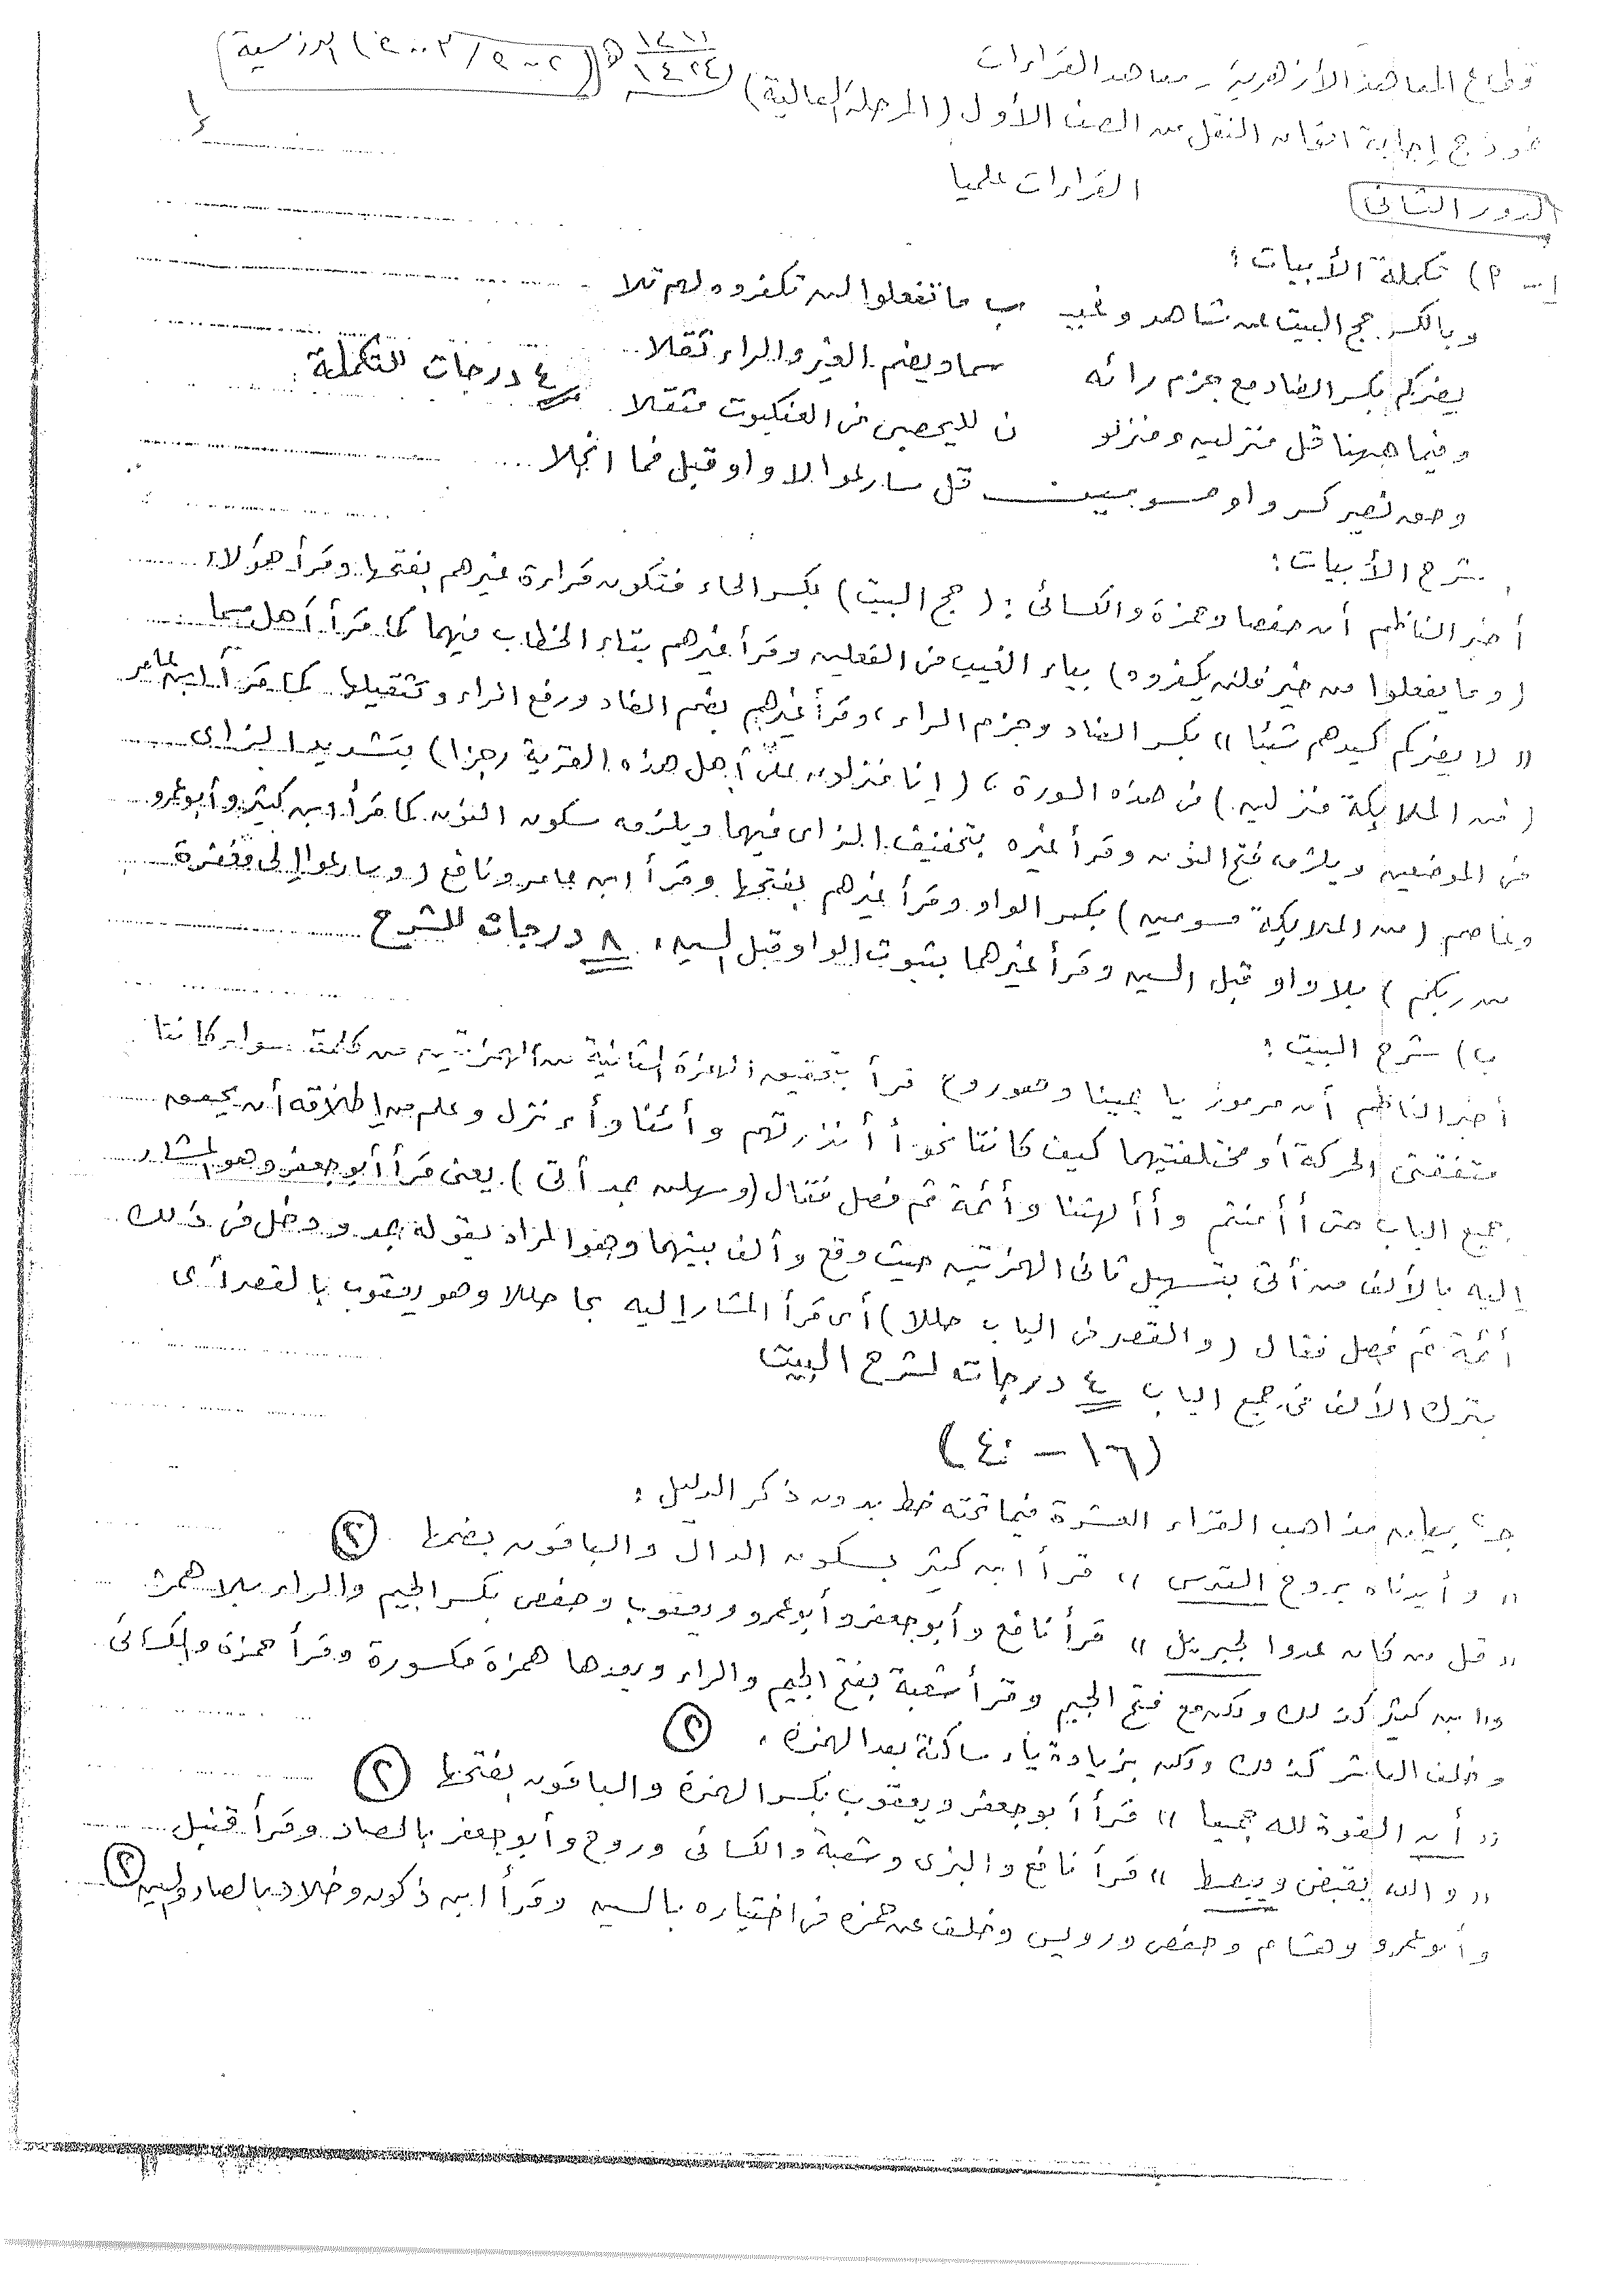 قطاع المعاهد الأزهرية - معاهد القراءات
نموذج إجابة امتحان النقل من الصف الأول (المرحلة العالية) ١٤٢٤ هـ (٢٠٠٢ / ٢٠٠٣) الدراسية
القراءات علميا
الدور الثانى
١- ٢) تكملة الأبيات :
وبالكسر حج البيت عن شاهد وغيب ب ما تفعلوا لن تكفروه لهم تلا
يضركم بكسر الضاد مع جزم رائه سما ويضم الغير والراء ثقلا
وفيما ههنا قل منزلين ومنزلو ن لليحصبى فى العنكبوت مثقلا ٤ درجات للتكملة
وحق نصير كسر واو مسومين قل سارعوا لا واو قبل كما انجلا
شرح الأبيات :
أخبر الناظم أن حفصا وحمزة والكسائى : (حج البيت) بكسر الحاء فتكون قراءة غيرهم بفتحها وقرأ هؤلاء
(وما يفعلوا من خير فلن يكفروه) بياء الغيب فى الفعلين وقرأ غيرهم بتاء الخطاب فيهما كما قرأ أهل سما
" لا يضركم كيدهم شيئا " بكسر الضاد وجزم الراء ، وقرأ غيرهم بضم الضاد ورفع الراء وتثقيلها كما قرأ ابن عامر
(من الملائكة منزلين) فى هذه السورة ، (إنا منزلون على أهل هذه القرية رجزا) بتشديد الزاى
فى الموضعين ويلزمه فتح النون وقرأ غيره بتخفيف الزاى فيهما ويلزمه سكون النون كما قرأ ابن كثير وأبو عمرو
وعاصم (من الملائكة مسومين) بكسر الواو وقرأ غيرهم بفتحها وقرأ ابن عامر ونافع (وسارعوا إلى مغفرة
من ربكم) بلا واو قبل السين وقرأ غيرهما بثبوت الواو قبل السين . ٨ درجات للشرح
ب) شرح البيت :
أخبر الناظم أن مرموز يا يمينا وهو روح قرأ بتحقيق الهمزة الثانية من الهمزتين من كلمة سواء كانتا
متفقتى الحركة أو مختلفتيهما كيف كانتا نحو أأنذرتهم وأئنا وأءنزل وعلم من إطلاقه أن يحقق
جميع الباب حتى أأمنتم وأألهتنا وأئمة ثم فصل فقال (وسهلن بمد أتى) يعنى قرأ أبو جعفر وهو المشار
إليه بالألف من أتى بتسهيل ثانى الهمزتين حيث وقع وألف بينهما وهو المراد بقوله بمد ودخل فى ذلك
أئمة ثم فصل فقال (والقصر فى الباب حللا) أى قرأ المشار إليه بحا حللا وهو يعقوب بالقصر أى
بترك الألف فى جميع الباب ٤ درجات لشرح البيت
(١٦ - ٤٠)
جـ) بيان مذاهب القراء العشرة فيما تحته خط بدون ذكر الدليل :
" وأيدناه بروح القدس " قرأ ابن كثير بسكون الدال والباقون بضمها ٢
" قل من كان عدوا لجبريل " قرأ نافع وأبو جعفر وأبو عمرو ويعقوب وحفص بكسر الجيم والراء بلا همز
وابن كثير كذلك ولكن مع فتح الجيم وقرأ شعبة بفتح الجيم والراء وبعدها همزة مكسورة وقرأ حمزة والكسائى
وخلف العاشر كذلك ولكن بزيادة ياء ساكنة بعد الهمزة . ٢
" أن القوة لله جميعا " قرأ أبو جعفر ويعقوب بكسر الهمزة والباقون بفتحها ٢
" والله يقبض ويبصط " قرأ نافع والبزى وشعبة والكسائى وروح وأبو جعفر بالصاد وقرأ قنبل
وأبو عمرو وهشام وحفص ورويس وخلف عن حمزة فى اختياره بالسين وقرأ ابن ذكوان وخلاد بالصاد والسين ٢